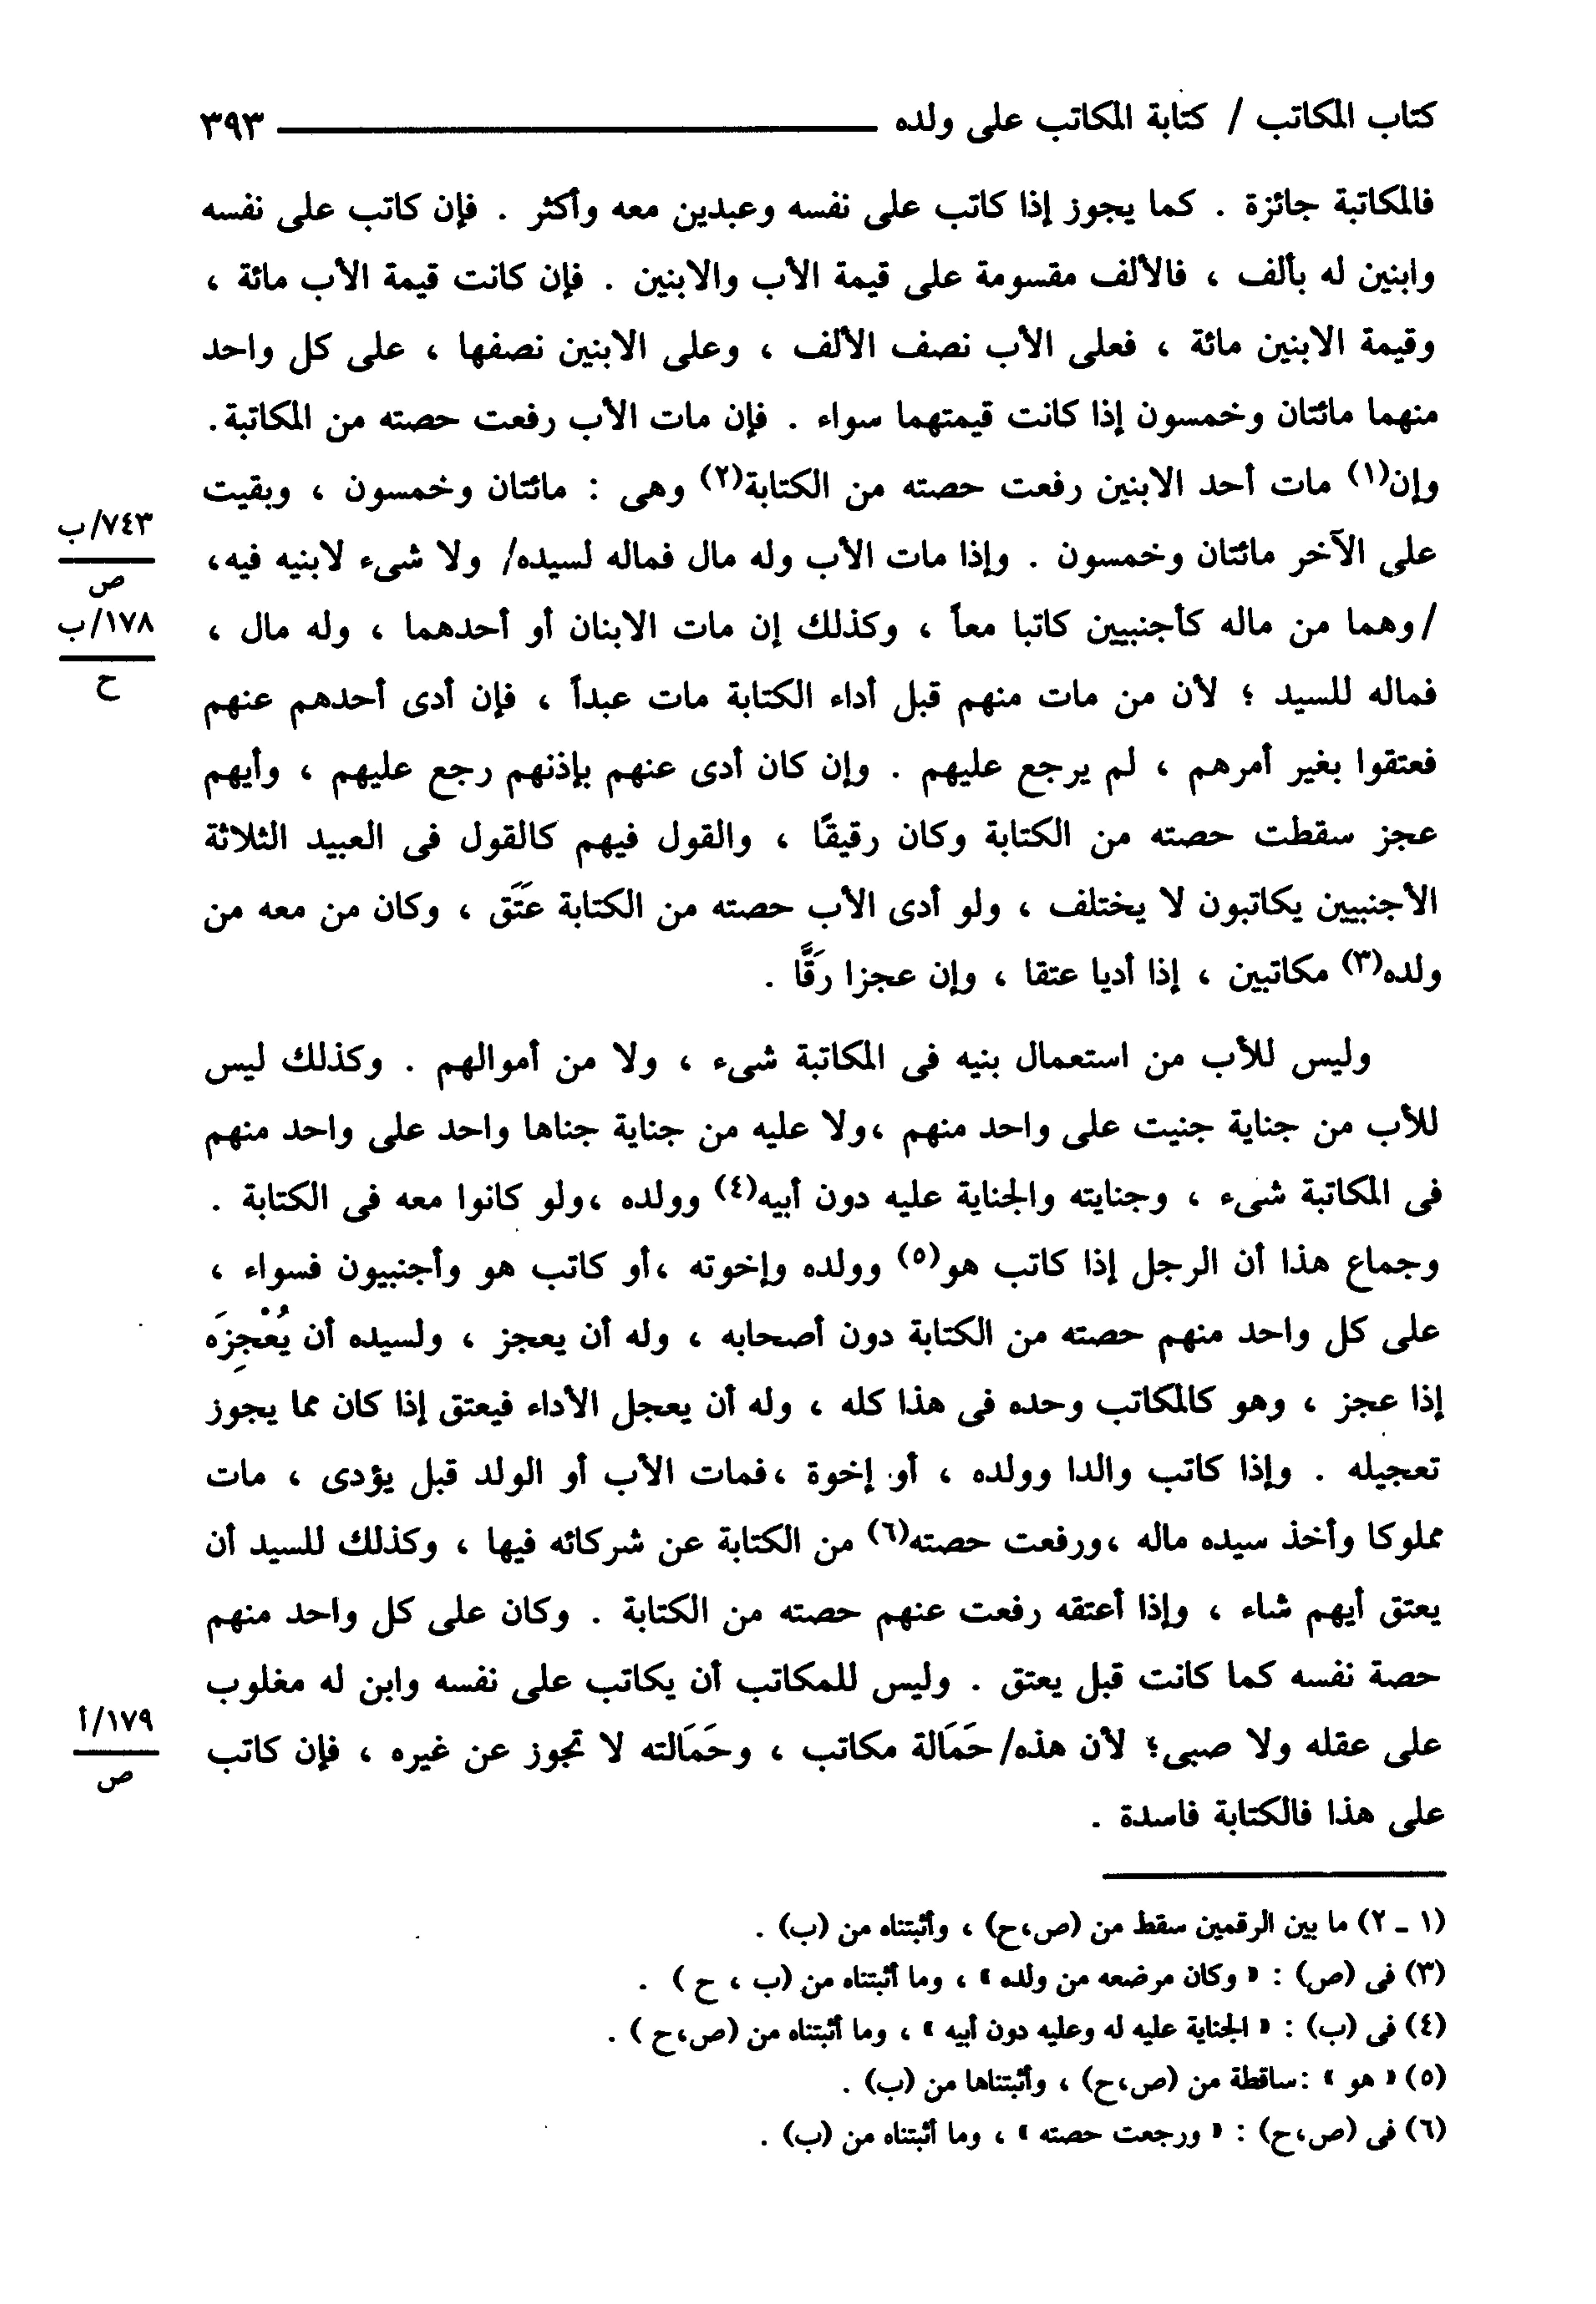 كتاب المكاتب / كتابة المكاتب على ولده ٣٩٣
فالمكاتبة جائزة . كما يجوز إذا كاتب على نفسه وعبدين معه وأكثر . فإن كاتب على نفسه
وابنين له بألف ، فالألف مقسومة على قيمة الأب والابنين . فإن كانت قيمة الأب مائة ،
وقيمة الابنين مائة ، فعلى الأب نصف الألف ، وعلى الابنين نصفها ، على كل واحد
منهما مائتان وخمسون إذا كانت قيمتهما سواء . فإن مات الأب رفعت حصته من المكاتبة.
وإن(١) مات أحد الابنين رفعت حصته من الكتابة(٢) وهى : مائتان وخمسون ، وبقيت
على الآخر مائتان وخمسون . وإذا مات الأب وله مال فماله لسيده/ ولا شىء لابنيه فيه،
٧٤٣/ب
ص
/وهما من ماله كأجنبيين كاتبا معاً ، وكذلك إن مات الابنان أو أحدهما ، وله مال ،
١٧٨/ب
ح
فماله للسيد ؛ لأن من مات منهم قبل أداء الكتابة مات عبداً ، فإن أدى أحدهم عنهم
فعتقوا بغير أمرهم ، لم يرجع عليهم . وإن كان أدى عنهم بإذنهم رجع عليهم ، وأيهم
عجز سقطت حصته من الكتابة وكان رقيقًا ، والقول فيهم كالقول فى العبيد الثلاثة
الأجنبيين يكاتبون لا يختلف ، ولو أدى الأب حصته من الكتابة عَتَق ، وكان من معه من
ولده(٣) مكاتبين ، إذا أديا عتقا ، وإن عجزا رَقَّا .
وليس للأب من استعمال بنيه فى المكاتبة شىء ، ولا من أموالهم . وكذلك ليس
للأب من جناية جنيت على واحد منهم ،ولا عليه من جناية جناها واحد على واحد منهم
فى المكاتبة شىء ، وجنايته والجناية عليه دون أبيه(٤) وولده ،ولو كانوا معه فى الكتابة .
وجماع هذا أن الرجل إذا كاتب هو(٥) وولده وإخوته ،أو كاتب هو وأجنبيون فسواء ،
على كل واحد منهم حصته من الكتابة دون أصحابه ، وله أن يعجز ، ولسيده أن يُعْجِزَه
إذا عجز ، وهو كالمكاتب وحده فى هذا كله ، وله أن يعجل الأداء فيعتق إذا كان مما يجوز
تعجيله . وإذا كاتب والدا وولده ، أو إخوة ،فمات الأب أو الولد قبل يؤدى ، مات
مملوكا وأخذ سيده ماله ،ورفعت حصته(٦) من الكتابة عن شركائه فيها ، وكذلك للسيد أن
يعتق أيهم شاء ، وإذا أعتقه رفعت عنهم حصته من الكتابة . وكان على كل واحد منهم
حصة نفسه كما كانت قبل يعتق . وليس للمكاتب أن يكاتب على نفسه وابن له مغلوب
على عقله ولا صبى؛ لأن هذه/ حَمَالة مكاتب ، وحَمَالته لا تجوز عن غيره ، فإن كاتب
١٧٩/أ
ص
على هذا فالكتابة فاسدة .
(١ ـ ٢) ما بين الرقمين سقط من (ص،ح) ، وأثبتناه من (ب) .
(٣) فى (ص) : « وكان مرضعه من ولده » ، وما أثبتناه من (ب ، ح ) .
(٤) فى (ب) : « الجناية عليه له وعليه دون أبيه » ، وما أثبتناه من (ص،ح ) .
(٥) « هو » :ساقطة من (ص،ح) ، وأثبتناها من (ب) .
(٦) فى (ص،ح) : « ورجعت حصته » ، وما أثبتناه من (ب) .